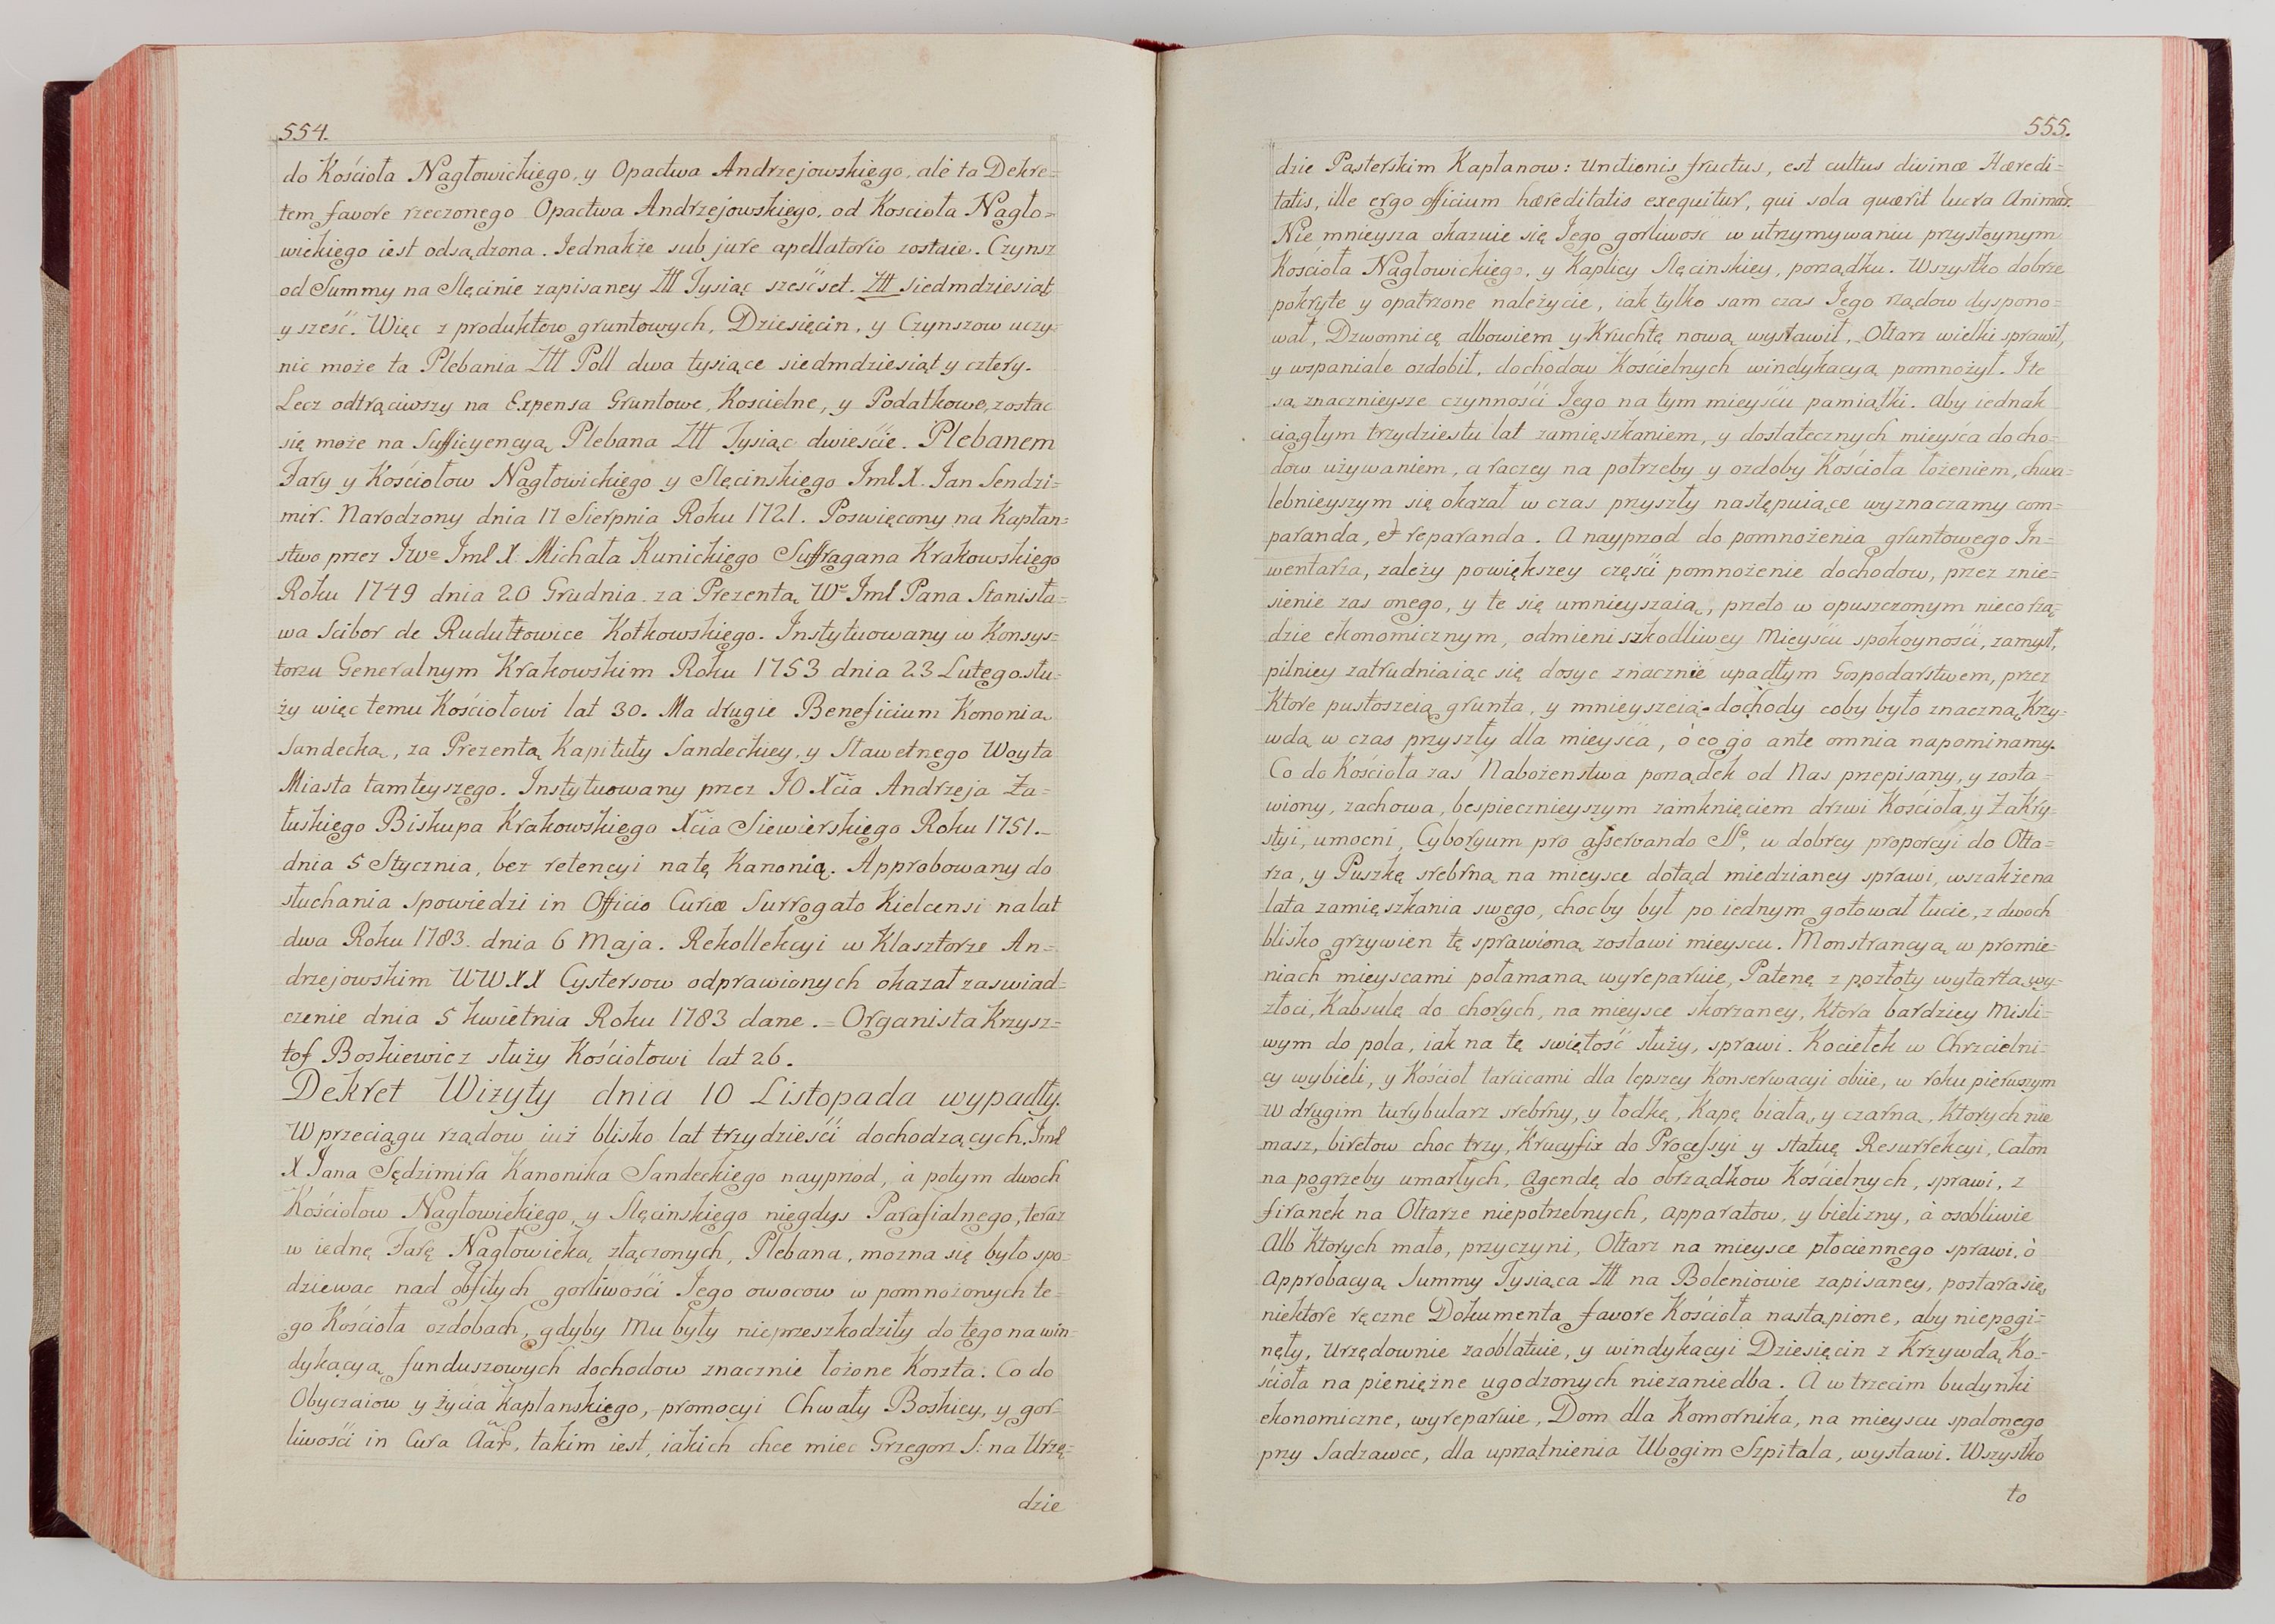 554.
do Kościoła Nagłowickiego, y Opactwa Andrzejowskiego, ale ta Dekre=
tem favore rzeczonego Opactwa Andrzejowskiego, od Koscioła Nagło=
wickiego iest odsądzona. Jednakże sub jure apellatorio zostaie. Czynsz
od Summy na Slęcinie zapisaney Ztt Tysiąc sześćset. Ztt siedmdziesiąt
y sześć. Więc z produktow gruntowych, Dziesięcin, y Czynszow uczy=
nic może ta Plebania Ztt Poll dwa tysiące siedmdziesiąt y cztery.
Lecz odtrąciwszy na Expensa Gruntowe, Koscielne, y Podatkowe, zostac
się może na Sufficyencyą Plebana Ztt Tysiąc dwieście. Plebanem
Fary y Kościołow Nagłowickiego y Slęcinskiego Jmł X. Jan Sendzi=
mir. Narodzony dnia 17 Sierpnia Roku 1721. Poswięcony na Kapłan=
stwo przez Jwo Jmł X. Michała Kunickiego Suffragana Krakowskiego
Roku 1749 dnia 20 Grudnia. za Prezentą Wo Jmł Pana Stanisła=
wa Scibor de Rudułtowice Kotkowskiego. Instytuowany w Konsys=
torzu Generalnym Krakowskim Roku 1753 dnia 23 Lutego. słu=
ży więc temu Kościołowi lat 30. Ma drugie Beneficium Kononią
Sandecką, za Prezentą Kapituły Sandeckiey, y Sławetnego Woyta
Miasta tamteyszego. Instytuowany przez JO Xcia Andrzeja Za=
łuskiego Biskupa Krakowskiego Xcia Siewierskiego Roku 1751.
dnia 5 Stycznia, bez retencyi na tę Kanonią. Approbowany do
słuchania Spowiedzi in Officio Curiæ Surrogato Kielcensi na lat
dwa Roku 1783. dnia 6 Maja. Rekollekcyi w Klasztorze An=
drzejowskim WWXX Cystersow odprawionych okazał zaswiad=
czenie dnia 5 kwietnia Roku 1783 dane. = Organista Krzysz=
tof Boskiewicz służy Kościołowi lat 26.
Dekret Wizyty dnia 10 Listopada wypadły.
W przeciągu rządow iuż blisko lat trzydzieści dochodzących, Jmł
X Jana Sędzimira Kanonika Sandeckiego nayprzod, à potym dwoch
Kościołow Nagłowickiego, y Slęcinskiego niegdys Parafialnego, teraz
w iednę Farę Nagłowicką złączonych, Plebana, mozna się było spo=
dziewac nad obfitych gorliwości Jego owocow w pomnożonych te=
go Kościoła ozdobach, gdyby Mu były nieprzeszkodziły do tego na win=
dykacyą funduszowych dochodow znacznie łożone Koszta. Co do
Obyczaiow y życia kapłanskiego, promocyi Chwały Boskiey, y gor=
liwości in Cura takim iest, iakich chce miec Grzegorz S: na Urzę=
dzie
555.
dzie Pasterskim Kapłanow: Unctionis fructus, est cultus divinæ Hæredi=
tatis, ille ergo officium hæreditatis exequitur, qui sola quærit lucra
Nie mnieysza okazuie się Jego gorliwość w utrzymywaniu przystoynym
Kościoła Nagłowickiego, y Kaplicy Slęcinskiey, porządku. Wszystko dobrze
pokryte y opatrzone należycie, iak tylko sam czas Jego rządow dyspono=
wał, Dzwonnicę albowiem y Kruchtę nową wystawił, Ołtarz wielki sprawił,
y wspaniale ozdobił, dochodow Kościelnych windykacyą pomnożył. Te
są znacznieysze czynności Jego na tym mieyścu pamiątki. Aby iednak
ciągłym trzydziestu lat zamięszkaniem, y dostatecznych mieysca docho=
dow używaniem, a raczey na potrzeby y ozdoby Kościoła łożeniem, chwa=
lebnieyszym się okazał w czas przyszły następuiące wyznaczamy com=
paranda, et reparanda. A nayprzod do pomnożenia gruntowego In=
wentarza, zależy powiększey części pomnożenie dochodow, przez znie=
sienie zas onego, y te się umnieyszaią, przeto w opuszczonym nieco rzą=
dzie ekonomicznym, odmieni szkodliwey Mieyscu spokoyności, zamysł,
pilniey zatrudniaiąc się dosyc znacznie upadłym Gospodarstwem, przez
Ktore pustoszeią grunta, y mnieyszeią dochody coby było znaczną Krzy=
wdą w czas przyszły dla mieysca, ò co go ante omnia napominamy.
Co do Kościoła zas Nabożenstwa porządek od Nas przepisany, y zosta=
wiony, zachowa, bespiecznieyszym zamknięciem drzwi Kościoła, y Zakry=
styi, umocni, Cyboryum pro asservando w dobrey proporcyi do Ołta=
rza, y Puszkę srebrną na mieysce dotąd miedzianey sprawi, wszakże na
lata zamięszkania swego, chocby był po iednym gotował łucie, z dwoch
blisko grzywien tę sprawioną zostawi mieyscu. Monstrancyą w promie=
niach mieyscami połamaną wyreparuie, Patenę z pozłoty wytartą wy=
złoci, Kabsulę do chorych, na mieysce skorzaney, Ktora bardziey Misli=
wym do pola, iak na tę swiętość służy, sprawi. Kociełek w Chrzcielni=
cy wybieli, y Kościoł tarcicami dla lepszey Konserwacyi obiie, w roku pierwszym
W drugim turybularz srebrny, y łodkę, Kapę białą, y czarną, Ktorych nie
masz, biretow choc trzy, Krucyfix do Processyi y statuę Resurrekcyi, Całon
na pogrzeby umarłych, Agendę do obrządkow Kościelnych, sprawi, z
firanek na Ołtarze niepotrzebnych, apparatow, y bielizny, à osobliwie
Alb Ktorych mało, przyczyni, Ołtarz na mieysce płociennego sprawi, ò
Approbacyą Summy Tysiąca Ztt na Boleniowie zapisaney, postara się,
niektore ręczne Dokumenta favore Kościoła nastąpione, aby niepogi=
nęły, Urzędownie zaoblatuie, y windykacyi Dziesięcin z Krzywdą Ko=
ścioła na pieniężne ugodzonych niezaniedba. A w trzecim budynki
ekonomiczne, wyreparuie, Dom dla Komornika, na mieyscu spalonego
przy Sadzawce, dla uprzątnienia Ubogim Szpitala, wystawi. Wszystko
to